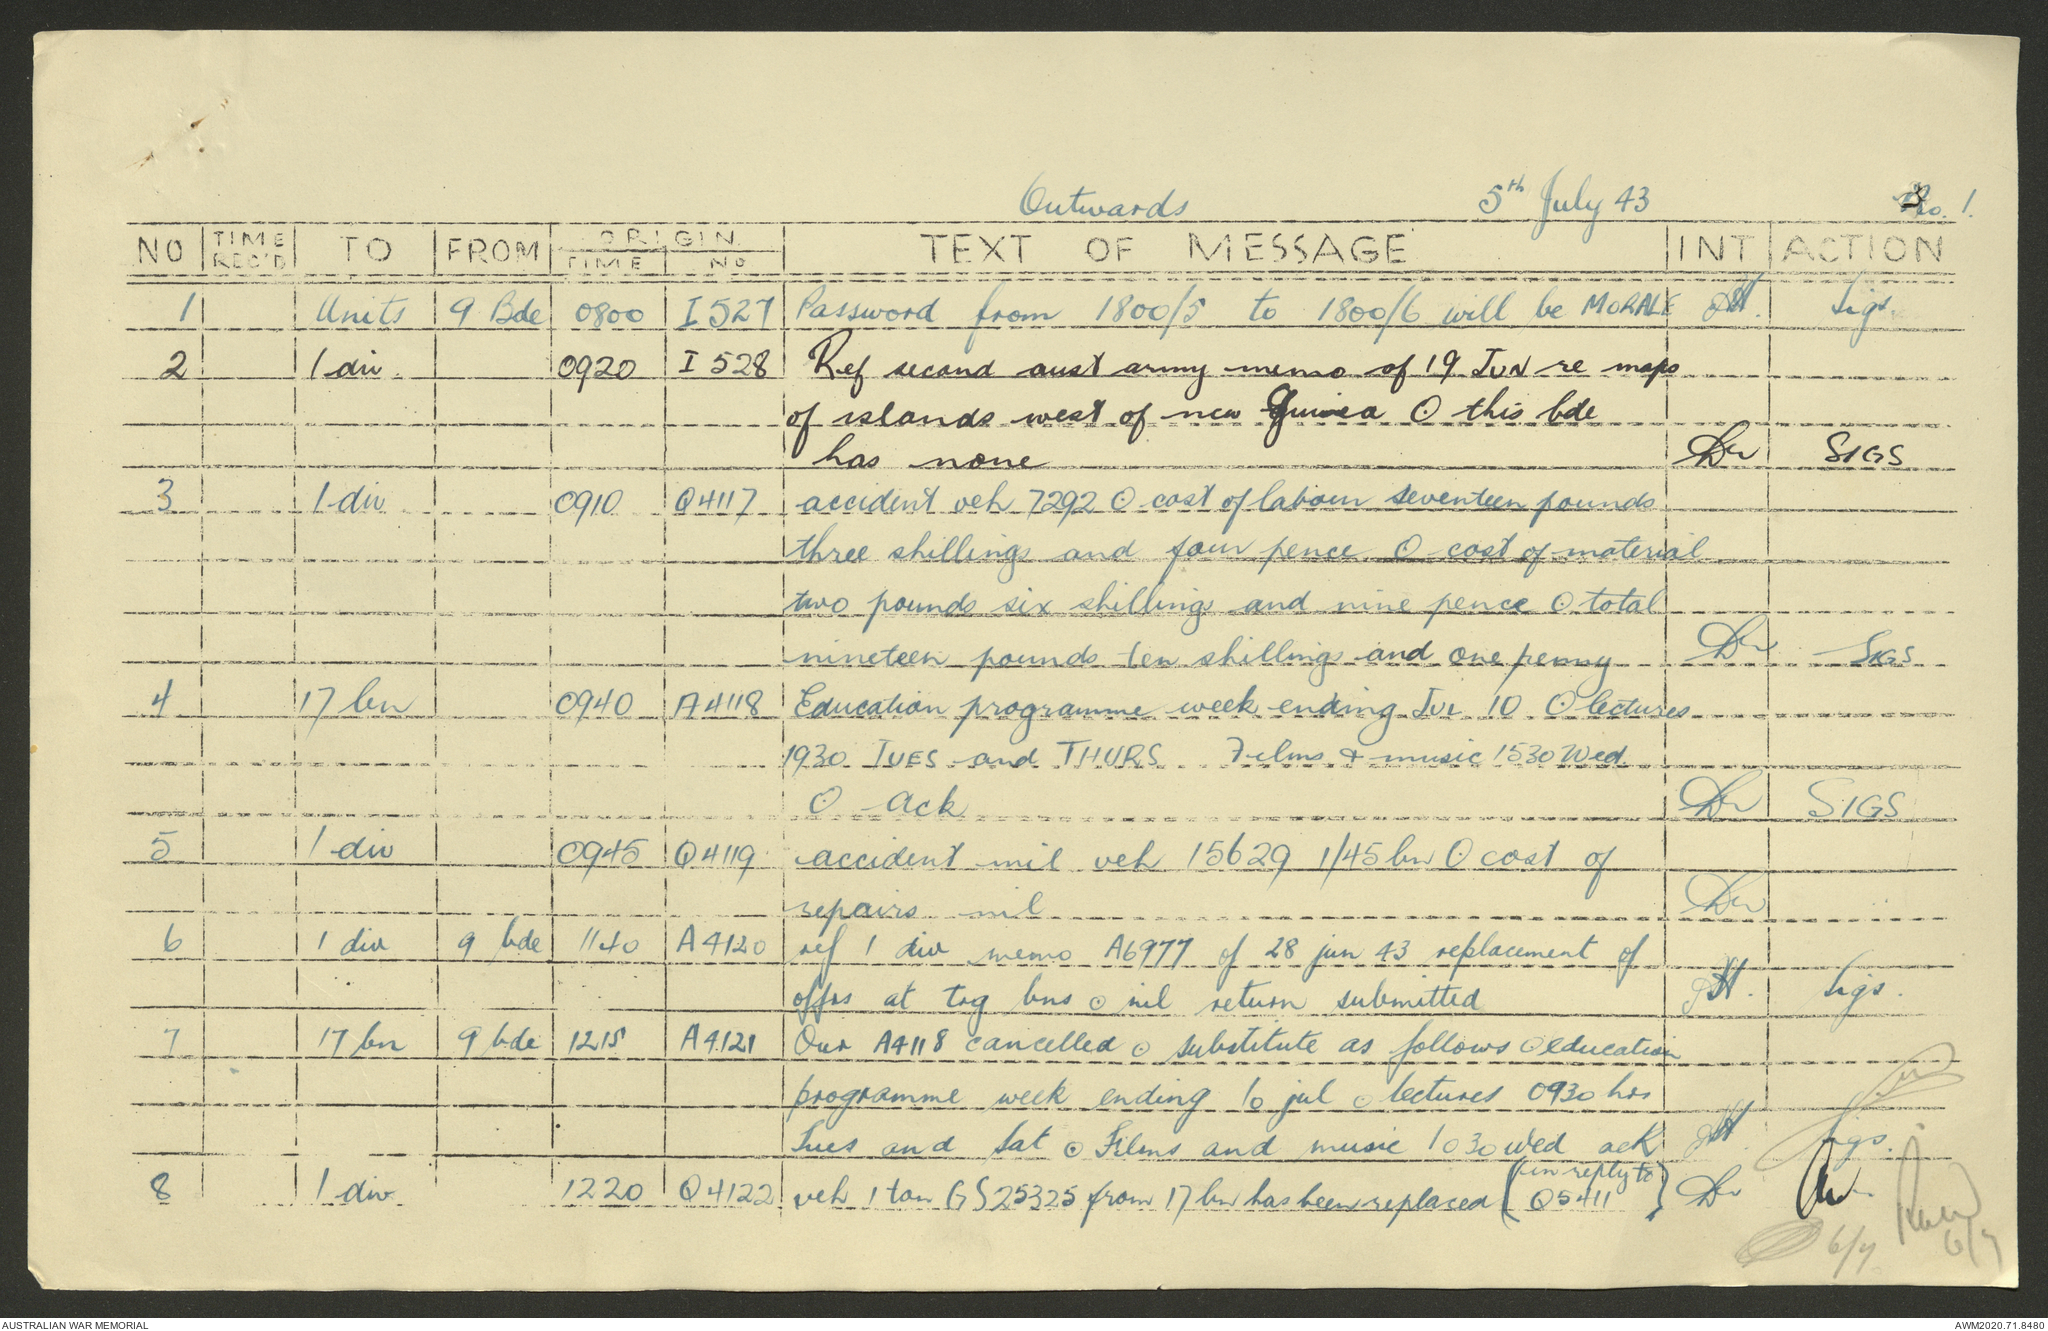 Outwards 5th July 43 No. 1.
NO TIME REC'D TO FROM ORIGIN TIME NO TEXT OF MESSAGE INT ACTION
1 Units 9 Bde 0800 I 527 Password from 1800/5 to 1800/6 will be MORALE Sigs
2 1 div. 0920 I 528 Ref second aust army memo of 19 JUN re maps
of islands west of new Guinea O this bde
has none SIGS
3 1 div 0910 Q4117 accident veh 7292 O cost of labour seventeen pounds
three shillings and four pence O cost of material
two pounds six shillings and nine pence O total
nineteen pounds ten shillings and one penny SIGS
4 17 bn 0940 A4118 Education programme week ending JUL 10 O lectures
1930 TUES and THURS Films & music 1530 Wed.
O ack SIGS
5 1 div 0945 Q4119 accident mil veh 15629 1/45 bn O cost of
repairs nil
6 1 div 9 bde 1140 A4120 ref 1 div memo A6977 of 28 jun 43 replacement of
offrs at trg bns O nil return submitted Sigs.
7 17 bn 9 bde 1215 A4121 Our A4118 cancelled O substitute as follows O education
programme week ending 10 jul O lectures 0930 hrs
Tues and Sat O Films and music 1030 Wed ack Sigs.
8 1 div 1220 Q4122 veh 1 ton GS 25325 from 17 bn has been replaced (in reply to Q5411)
6/7 6/7
AUSTRALIAN WAR MEMORIAL AWM2020.71.8480